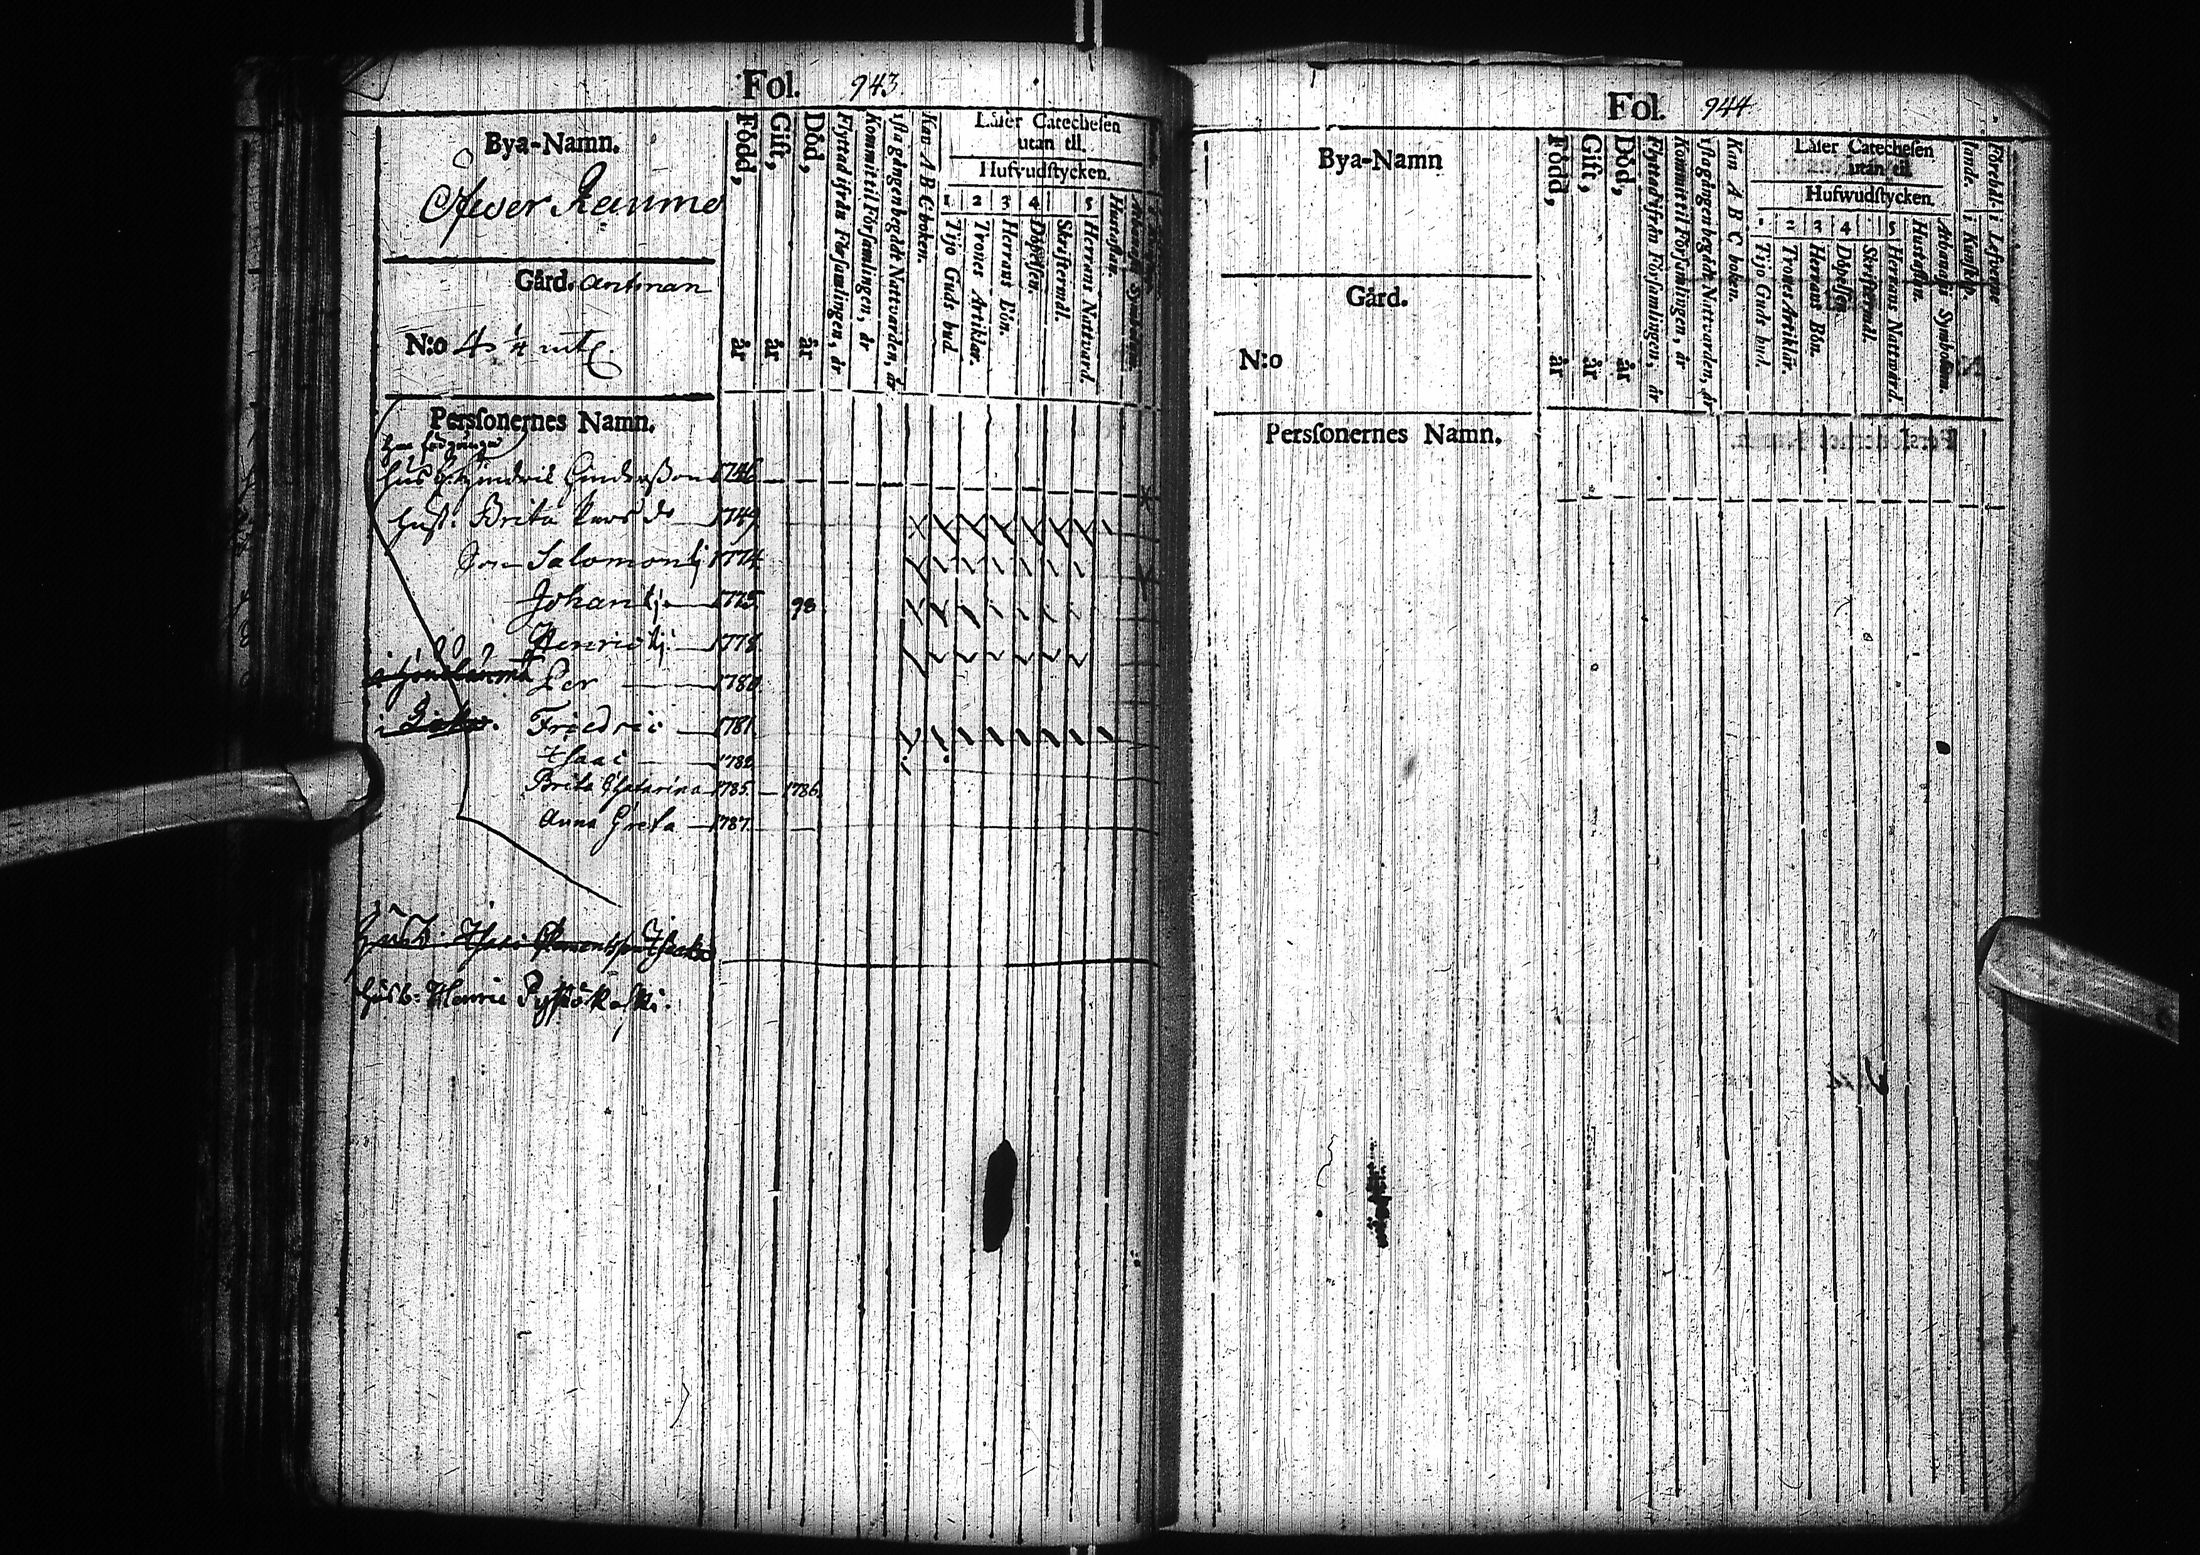 Fol. 943
Bya-Namn.
Öfwer Raumo
Gård. Antman
N:o 4 ¼ mtl.
Född, år
Gift, år
Död, år
Flyttad ifrån Församlingen, år
Kommit til Församlingen, år
1sta gången begådt Nattvarden, år
Kan A B C-boken.
Läser Catechesen
utan til.
Hufvudstycken.
1 2 3 4 5
Tijo Guds bud.
Trones Artiklar.
Herrans Bön.
Döpelsen.
Skriftermål.
Herrans Nattvard.
Hustaflan.
Athanasii Symbolum.
Personernes Namn.
Hindric Hindersson 1746
hust. Brita Lars dr 1749
Son Salomon 1774
Johan 1775 98
Henric 1778
Per 1780
i Fridric 1781
Isaac 1782
Brita Chatarina 1785 1786
Anna Greta 1787
Husb. Isaac
husb. Henric
Fol. 944
Bya-Namn
Gård.
N:o
Född, år
Gift, år
Död, år
Flyttad ifrån Församlingen, år
Kommit til Församlingen, år
1sta gången begådt Nattvarden, år
Kan A B C boken.
Läser Catechesen
utan til
Hufwudstycken.
1 2 3 4 5
Tijo Guds bud.
Trones Artiklar.
Herrans Bön.
Döpelsen
Skriftermål.
Herrans Nattvard.
Hustaflan.
Athanasii Symbolum.
Förehåll. i Lefverne
i Kunskap.
Personernes Namn.